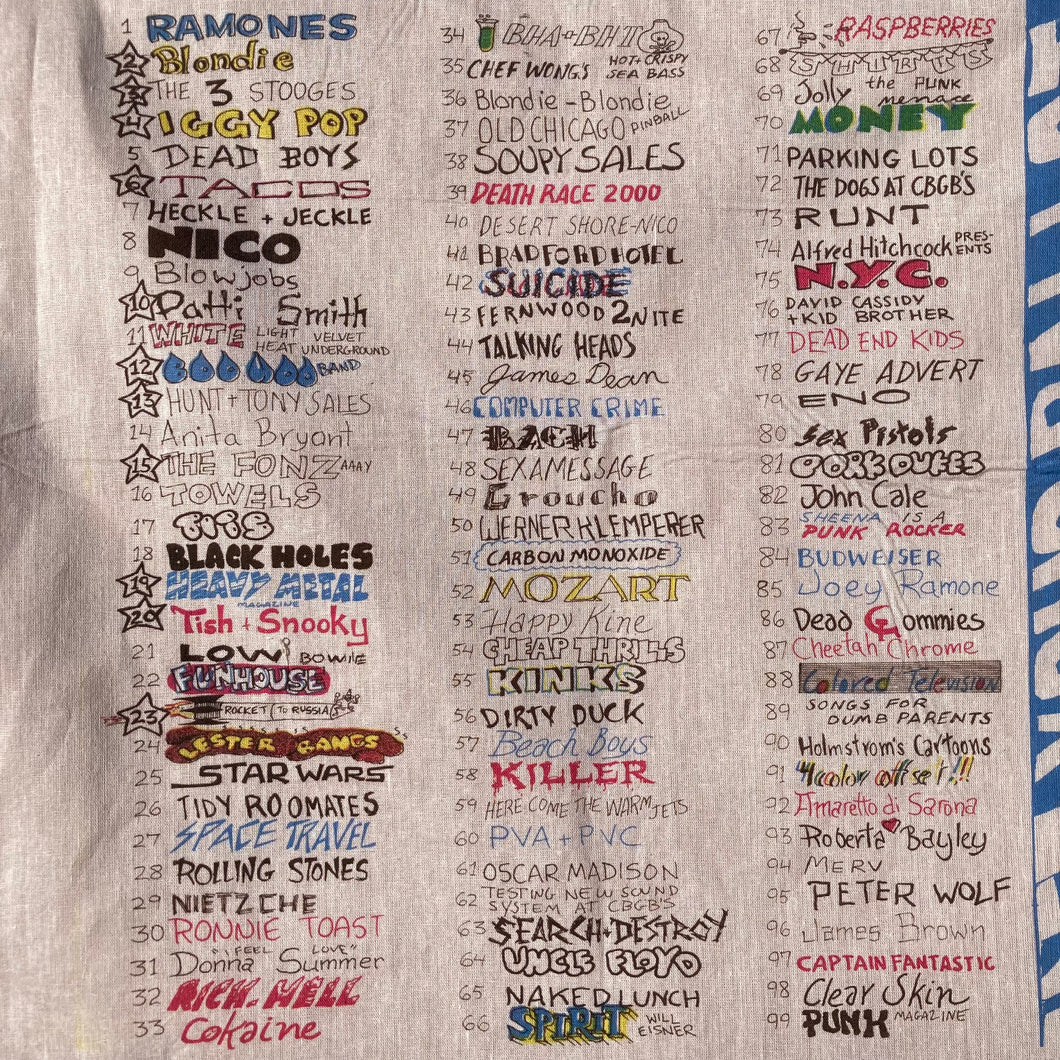 1 RAMONES
2 Blondie
3 THE 3 STOOGES
4 IGGY POP
5 DEAD BOYS
6 TACOS
7 HECKLE + JECKLE
8 NICO
9 Blowjobs
10 Patti Smith
11 WHITE LIGHT VELVET
HEAT UNDERGROUND
12 BAND
13 HUNT + TONY SALES
14 Anita Bryant
15 THE FONZ AAAY
16 TOWELS
17 TITS
18 BLACK HOLES
19 HEAVY METAL
MAGAZINE
20 Tish + Snooky
21 LOW BOWIE
22 FUNHOUSE
23 ROCKET (TO RUSSIA)
24 LESTER BANGS
25 STAR WARS
26 TIDY ROOMATES
27 SPACE TRAVEL
28 ROLLING STONES
29 NIETZCHE
30 RONNIE TOAST
"I FEEL LOVE"
31 Donna Summer
32 RICH. HELL
33 Cokaine
34
35 CHEF WONG'S HOT + CRISPY
SEA BASS
36 Blondie - Blondie
37 OLD CHICAGO PINBALL
38 SOUPY SALES
39 DEATH RACE 2000
40 DESERT SHORE - NICO
41 BRADFORD HOTEL
42 SUICIDE
43 FERNWOOD 2NITE
44 TALKING HEADS
45 James Dean
46 COMPUTER CRIME
47 BACH
48 SEXAMESSAGE
49 Groucho
50 WERNER KLEMPERER
51 CARBON MONOXIDE
52 MOZART
53 Happy Kine
54 CHEAP THRILLS
55 KINKS
56 DIRTY DUCK
57 Beach Boys
58 KILLER
59 HERE COME THE WARM JETS
60 PVA + PVC
61 OSCAR MADISON
62 TESTING NEW SOUND
SYSTEM AT CBGB'S
63 SEARCH + DESTROY
64 UNCLE FLOYD
65 NAKED LUNCH
66 SPIRIT WILL
EISNER
67 RASPBERRIES
68 SHIRTS
69 Jolly the PUNK
menace
70 MONEY
71 PARKING LOTS
72 THE DOGS AT CBGB'S
73 RUNT
74 Alfred Hitchcock PRES-
ENTS
75 N.Y.C.
76 DAVID CASSIDY
+ KID BROTHER
77 DEAD END KIDS
78 GAYE ADVERT
79 ENO
80 Sex Pistols
81 PORK DUKES
82 John Cale
83 SHEENA IS A
PUNK ROCKER
84 BUDWEISER
85 Joey Ramone
86 Dead Commies
87 Cheetah Chrome
88 Colored Television
89 SONGS FOR
DUMB PARENTS
90 Holmstrom's Cartoons
91 4 color offset!!!
92 Amaretto di Sarona
93 Roberta Bayley
94 MERV
95 PETER WOLF
96 James Brown
97 CAPTAIN FANTASTIC
98 Clear Skin
99 PUNK MAGAZINE